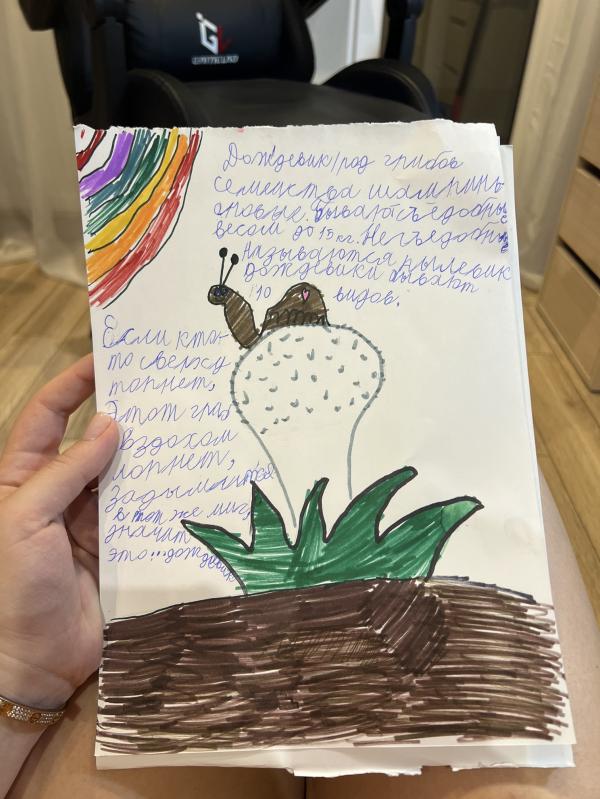 Дождевик/род грибов
семейства шампинь-
оновых. Бывают съедобные
весом до 15 кг. Несъедобные
называются пылевик
Дождевики бывают
110 видов.
Если кто-
то сверху
топнет,
Этот гриб
вздохом
лопнет,
Задымится
в тот же миг,
значит
это...дождевик